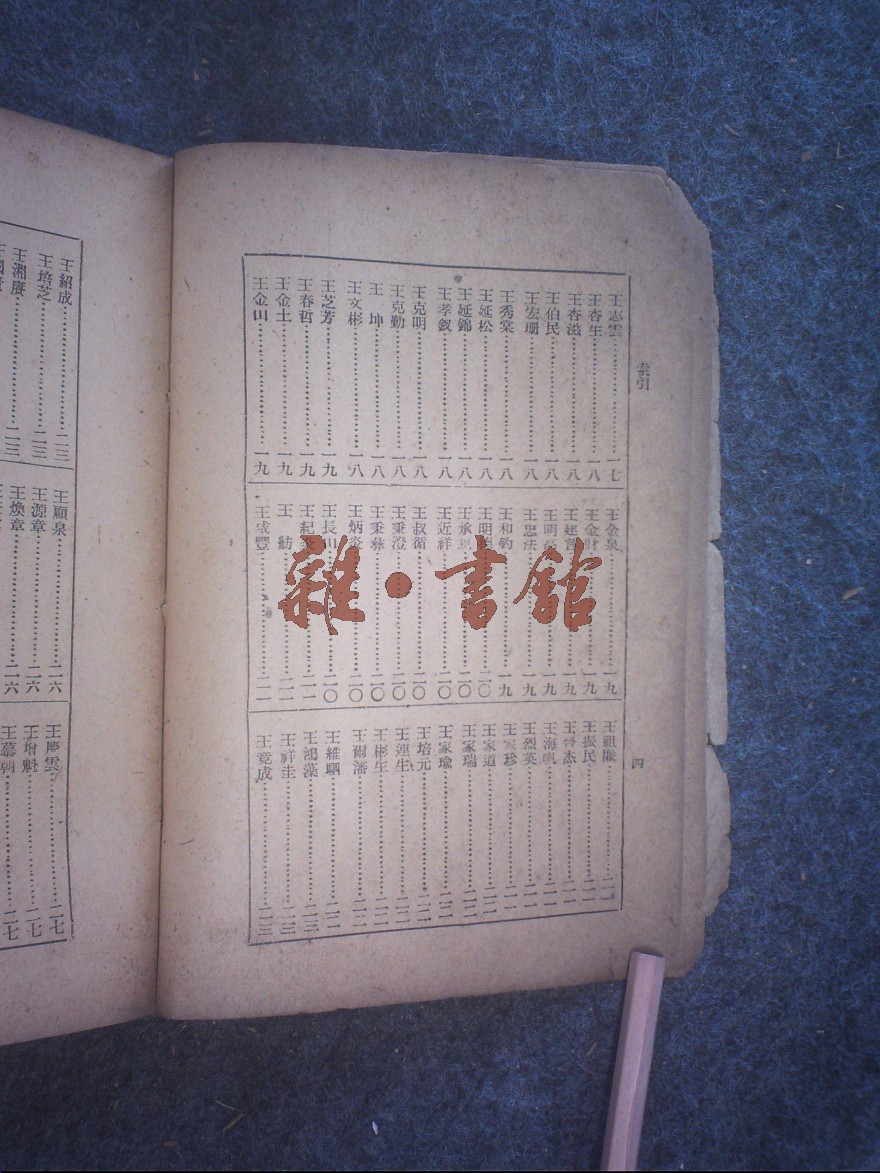 索引
四
王志雲…………一七
王杏生…………一八
王杏滋…………一八
王伯民…………一八
王宏珊…………一八
王秀棠…………一八
王延松…………一八
王延錦…………一八
王孝釵…………一八
王克明…………一八
王克勤…………一八
王坤…………一八
王文彬…………一八
王芝芳…………一九
王春哲…………一九
王金土…………一九
王金山…………一九
王金泉…………一九
王金…………一九
王…………一九
王明…………一九
王忠法…………一九
王和鈞…………一九
王明…………二〇
王承…………二〇
王近祥…………二〇
王叔循…………二〇
王秉澄…………二〇
王秉彝…………二〇
王炳炎…………二〇
王長山…………二〇
王紀…………二一
王舫…………二一
王咸豐…………二一
王祖…………二一
王振民…………二一
王杰…………二一
王海帆…………二一
王烈英…………二一
王家珍…………二一
王家道…………二二
王家瑞…………二二
王家瑜…………二二
王培元…………二二
王運生…………二二
王彬生…………二二
王爾藩…………二二
王維駟…………二二
王鴻藻…………二三
王祥圭…………二三
王竟成…………二三
王紹成…………二三
王培芝…………二三
王湘賡…………二三
王顧泉…………二六
王源章…………二六
王煥章…………二六
王慶雲…………二七
王增魁…………二七
王慕…………二七
雜·書館